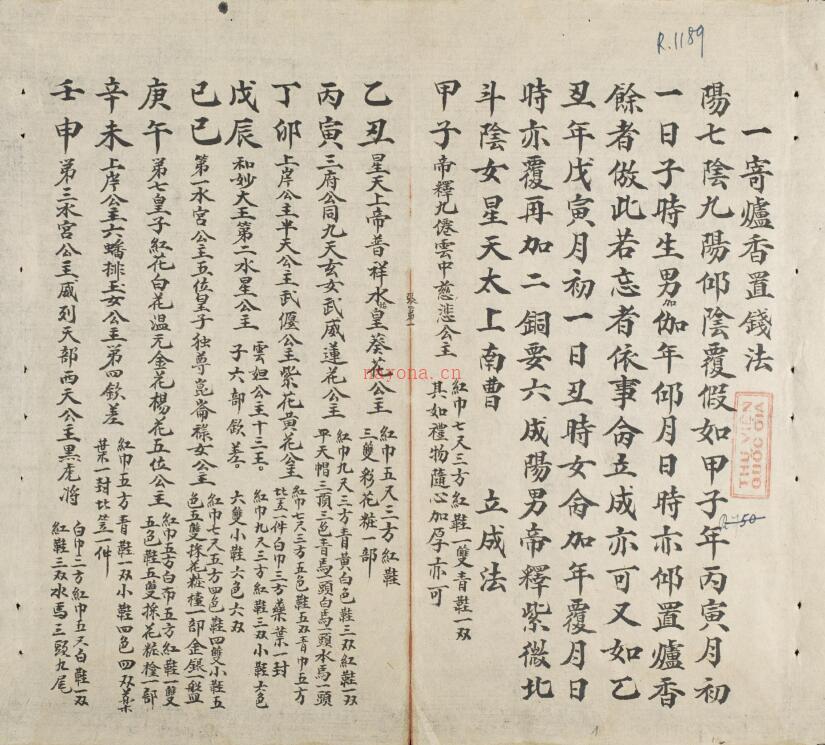 R.1189
一寄爐香置錢法
陽七陰九陽仰陰覆假如甲子年丙寅月初
一日子時生男加伽年仰月日時亦仰置爐香
餘者倣此若忘者依事侖立成亦可又如乙
丑年戊寅月初一日丑時女侖加年覆月日
時亦覆再加二銅要六成陽男帝釋紫微北
斗陰女星天太上南曹 立成法
甲子帝釋九僊雲中慈悲公主 紅巾七尺三方紅鞋一雙青鞋一双
其如禮物隨心加厚亦可
乙丑星天上帝普祥水皇葵花公主 紅巾五尺三方紅鞋
三雙彩花粧一部
丙寅三府公同九天玄女武威蓮花公主 紅巾九尺三方青黄白色鞋三双紅鞋一双
平天帽三頭三色青馬一頭白馬一頭水馬一頭
丁卯上岸公主半天公主武偃公主紫花黄花公主 紅巾七尺三方五色鞋五双青巾五方
一件白巾三方藥葉一封
戊辰和妙大王第二水星公主 雲妲公主十三王。 紅巾九尺三方紅鞋三双小鞋六色
子六部欽善。 六雙小鞋六色六双
已巳第一水宮公主五位皇子独尊崑崙祿女公主 紅巾七尺五方四色鞋四雙小鞋五
色五雙採花粧檯一部金銀一盤
庚午第七皇子紅花白花溫元金花楊花五位公主 紅巾五方白布五方紅鞋一雙
五色鞋五雙採花粧檯一部
辛未上岸公主六蟠排玉女公主第四欽差 紅巾五方青鞋一双小鞋四色四双藥
葉一封 一件
壬申第三水宮公主威列天部西天公主黑虎將 白巾二方紅巾五尺白鞋一双
紅鞋三双水馬三頭九尾
nayona.cn
THƯ VIỆN
QUỐC GIA